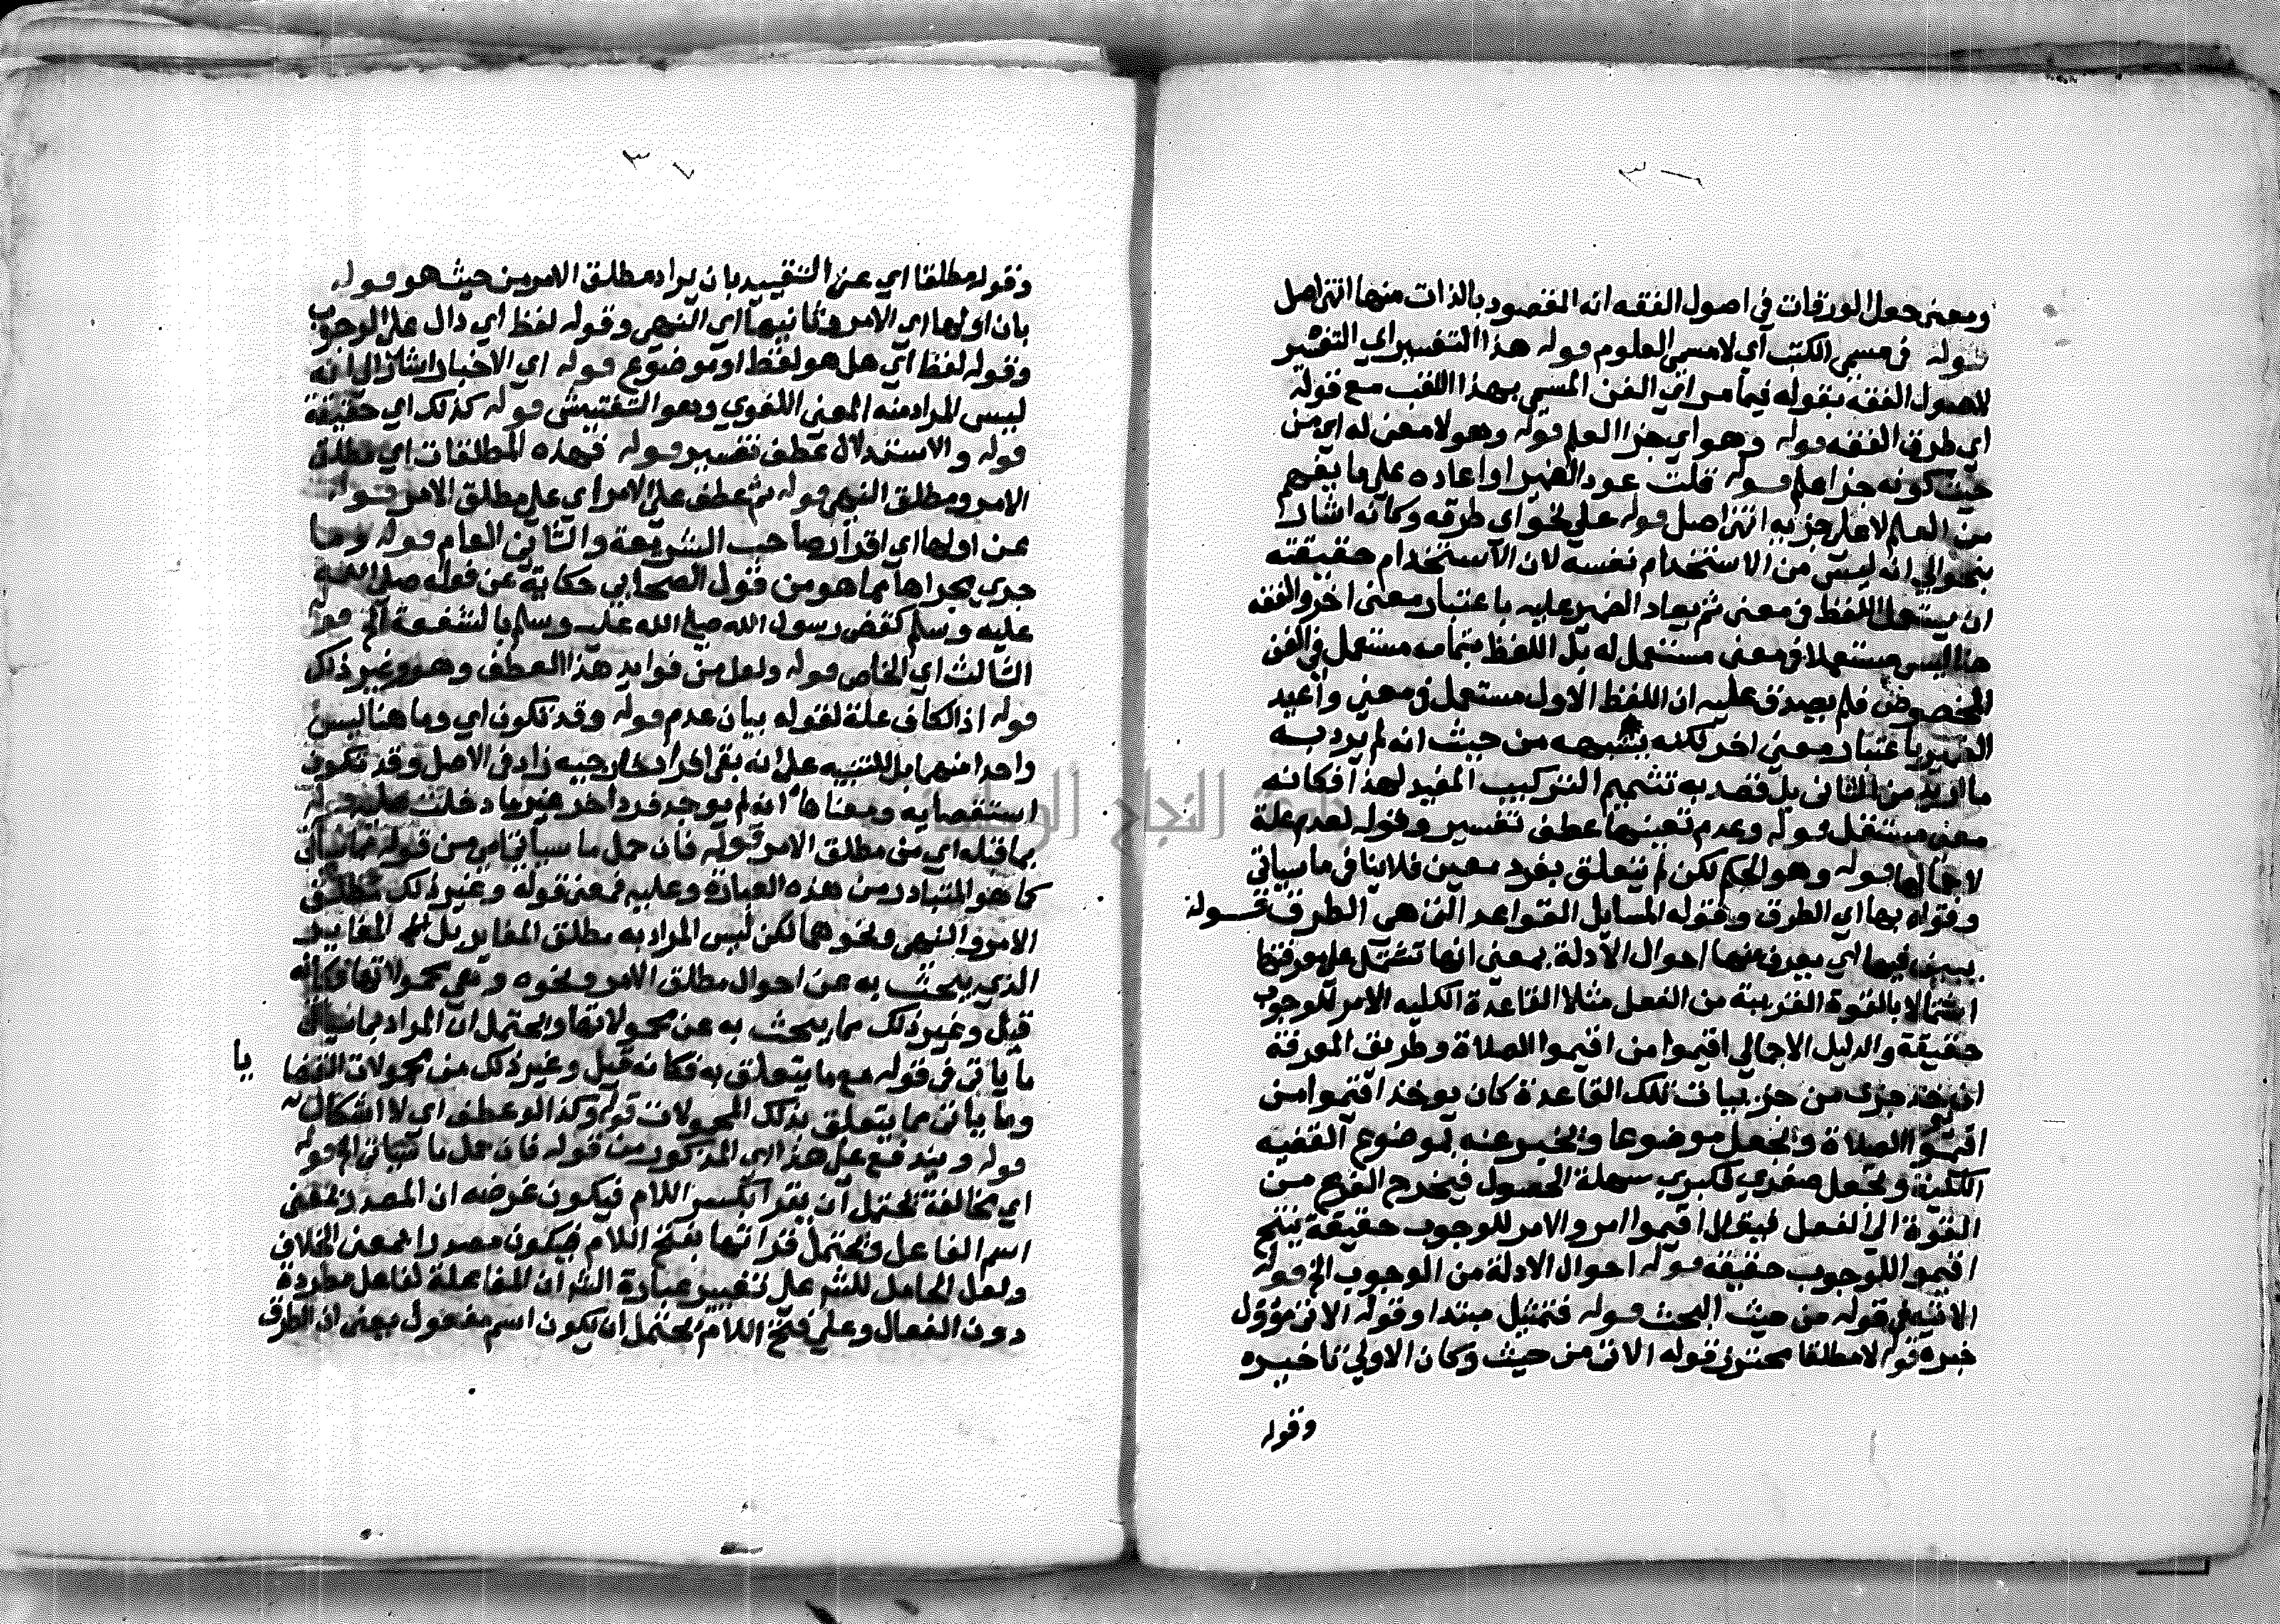 ومعنى جعل الورقات في اصول الفقه انه المقصود بالذات منها انتهى اصل
قوله في مسمى الكتب اي لا مسمى العلوم قوله هذا التفسير اي التفسير
لاصول الفقه بقوله فيما مر اي الفن المسمى بهذا اللقب مع قوله
اي طرق الفقه قوله وهو اي جزا العلم قوله وهو لا معنى له اي من
حيث كونه جزا علم قوله قلت عود الضمير او اعاده على ما يفهم
من العلم لا على جزيه انتهى اصل قوله على نحو اي طرقه وكانه اشار
بنحو الي انه ليس من الاستخدام نفسه لان الاستخدام حقيقته
ان يستعمل اللفظ في معنى ثم يعاد الضمير عليه باعتبار معنى اخر والفقه
هنا ليس مستعملا في معنى مستعمل له بل اللفظ بتمامه مستعمل في الفن
المخصوص فلم يصدق عليه ان اللفظ الاول مستعمل في معنى واعيد
الضمير باعتبار معنى اخر لكنه يشبهه من حيث انه لم يرد به
ما اريد من الثاني بل قصد به تتميم التركيب المفيد لهذا فكانه
معنى مستقل قوله وعدم تعينها عطف تفسير وقوله لعدم علة
لاجمالها قوله وهو الحكم لكن لم يتعلق بفرد معين فلا ينافي ما سياتي
وقوله بها اي الطرق وقوله المسايل القواعد التي هي الطرق قوله
يبين فيها اي يعرف منها احوال الادلة بمعنى انها تشتمل على معرفتها
اشتمالا بالقوة القريبة من الفعل مثلا القاعدة الكليه الامر للوجوب
حقيقة والدليل الاجمالي اقيموا من اقيموا الصلاة وطريق المعرفة
ان يوخذ جزي من جزييات تلك القاعدة كان يوخذ اقيموا من
اقيموا الصلاة ويجعل موضوعا ويخبر عنه بموضوع القضيه
الكلية ويجعل صغري لكبري سهلة الحصول فيخرج الفرع من
القوة الى الفعل فيقال اقيموا امر والامر للوجوب حقيقة ينتج
اقيموا للوجوب حقيقة قوله احوال الادلة من الوجوب الخ قوله
الاتيه في قوله من حيث البحث قوله فتمثيل مبتدا وقوله الاتي مؤول
خبره قوله لا مطلقا محترز قوله الاتي من حيث وكان الاولي تاخيره
وقوله
وقوله مطلقا اي عن التقييد بان يراد مطلق الامر من حيث هو قوله
بان اولها اي الامر وثانيها اي النهي وقوله لفظ اي دال على الوجوب
وقوله لفظ اي هل هو لفظ او موضوع قوله اي الاخبار اشار الى انه
ليس المراد منه المعنى اللغوي وهو التفتيش قوله كذلك اي حقيقة
قوله والاستدلال عطف تفسير قوله فهذه المطلقات اي مطلق
الامر ومطلق النهي قوله ثم عطف على الامر اي على مطلق الامر قوله
عن اولها اي اقرار صاحب الشريعة والثاني العام قوله وما
جري مجراها مما هو من قول الصحابي حكاية عن فعله صلى الله
عليه وسلم كقضى رسول الله صلى الله عليه وسلم بالشفعة الخ قوله
الثالث اي الخاص قوله ولعل من فوايد هذا العطف وهو وغير ذلك
قوله اذ الكاف علة لقوله بيان عدم قوله وقد تكون اي وما هنا ليس
واحدا منهما بل للتنبيه على انه بقي افراد خارجيه زاد في الاصل وقد تكون
استقصايه ومعناها انه لم يوجد فرد اخر غير ما دخلت عليه قوله
بما قبله اي من مطلق الامر قوله فان حمل ما سياتي اي من قوله مما سياتي
كما هو المتبادر من هذه العبارة وعليه فمعنى قوله وغير ذلك مطلق
الامر والنهي ونحوهما لكن ليس المراد به مطلق المغاير بل المغاير
الذي يبحث به عن احوال مطلق الامر ونحوه وهي محمولاتها فكانه
قيل وغير ذلك مما يبحث به عن محمولاتها ويحتمل ان المراد بما سياتي
ما ياتي في قوله مع ما يتعلق به فكانه قيل وغير ذلك من محمولات القضايا
وما ياتي مما يتعلق بذلك المحمولات قوله وكذا لو عطف اي لا اشكال
قوله ويندفع على هذا اي المذكور من قوله فان حمل ما سياتي الخ قوله
اي مخالفة تحتمل ان يقرا بكسر اللام فيكون غرضه ان المصدر بمعنى
اسم الفاعل ويحتمل قراتها بفتح اللام فيكون مصدرا بمعنى الخلاف
ولعل الحامل للشر على تغيير عبارة الشر ان المفاعلة لفاعل مطردة
دون الفعال وعلى فتح اللام يحتمل ان يكون اسم مفعول بمعنى ان الطرق